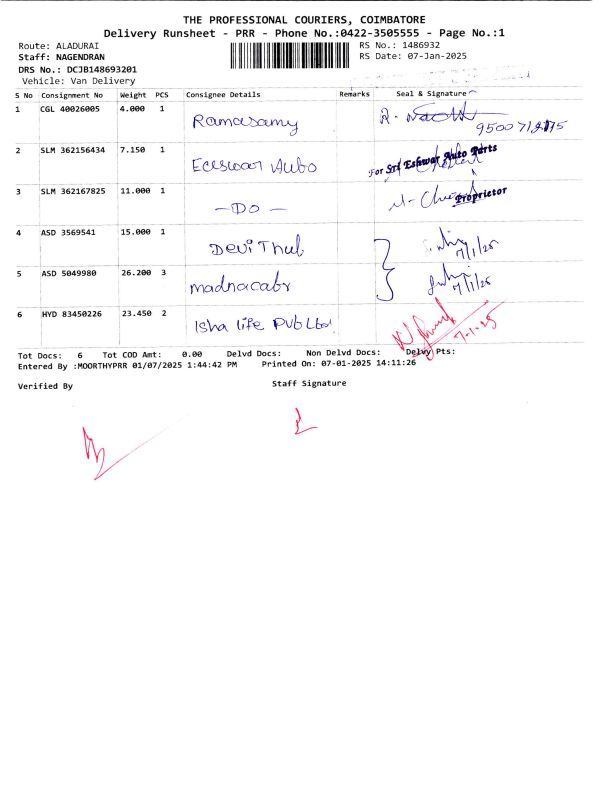 THE PROFESSIONAL COURIERS, COIMBATORE
Delivery Runsheet - PRR - Phone No.:0422-3505555 - Page No.:1
Route: ALADURAI
RS No.: 1486932
Staff: NAGENDRAN
RS Date: 07-Jan-2025
DRS No.: DCJB148693201
Vehicle: Van Delivery
S No Consignment No Weight PCS Consignee Details Remarks Seal & Signature
1 CGL 40026005 4.000 1 Ramasamy
2 SLM 362156434 7.150 1 Eceswar Auto For Sri Eshwar Auto Parts
3 SLM 362167825 11.000 1 -DO- Proprietor
4 ASD 3569541 15.000 1 Devi Thul 7/1/25
5 ASD 5049980 26.200 3 7/1/25
6 HYD 83450226 23.450 2 Isha life Pvt Ltd 7-1-25
Tot Docs: 6 Tot COD Amt: 0.00 Delvd Docs: Non Delvd Docs: Delvy Pts:
Entered By :MOORTHYPRR 01/07/2025 1:44:42 PM Printed On: 07-01-2025 14:11:26
Verified By Staff Signature